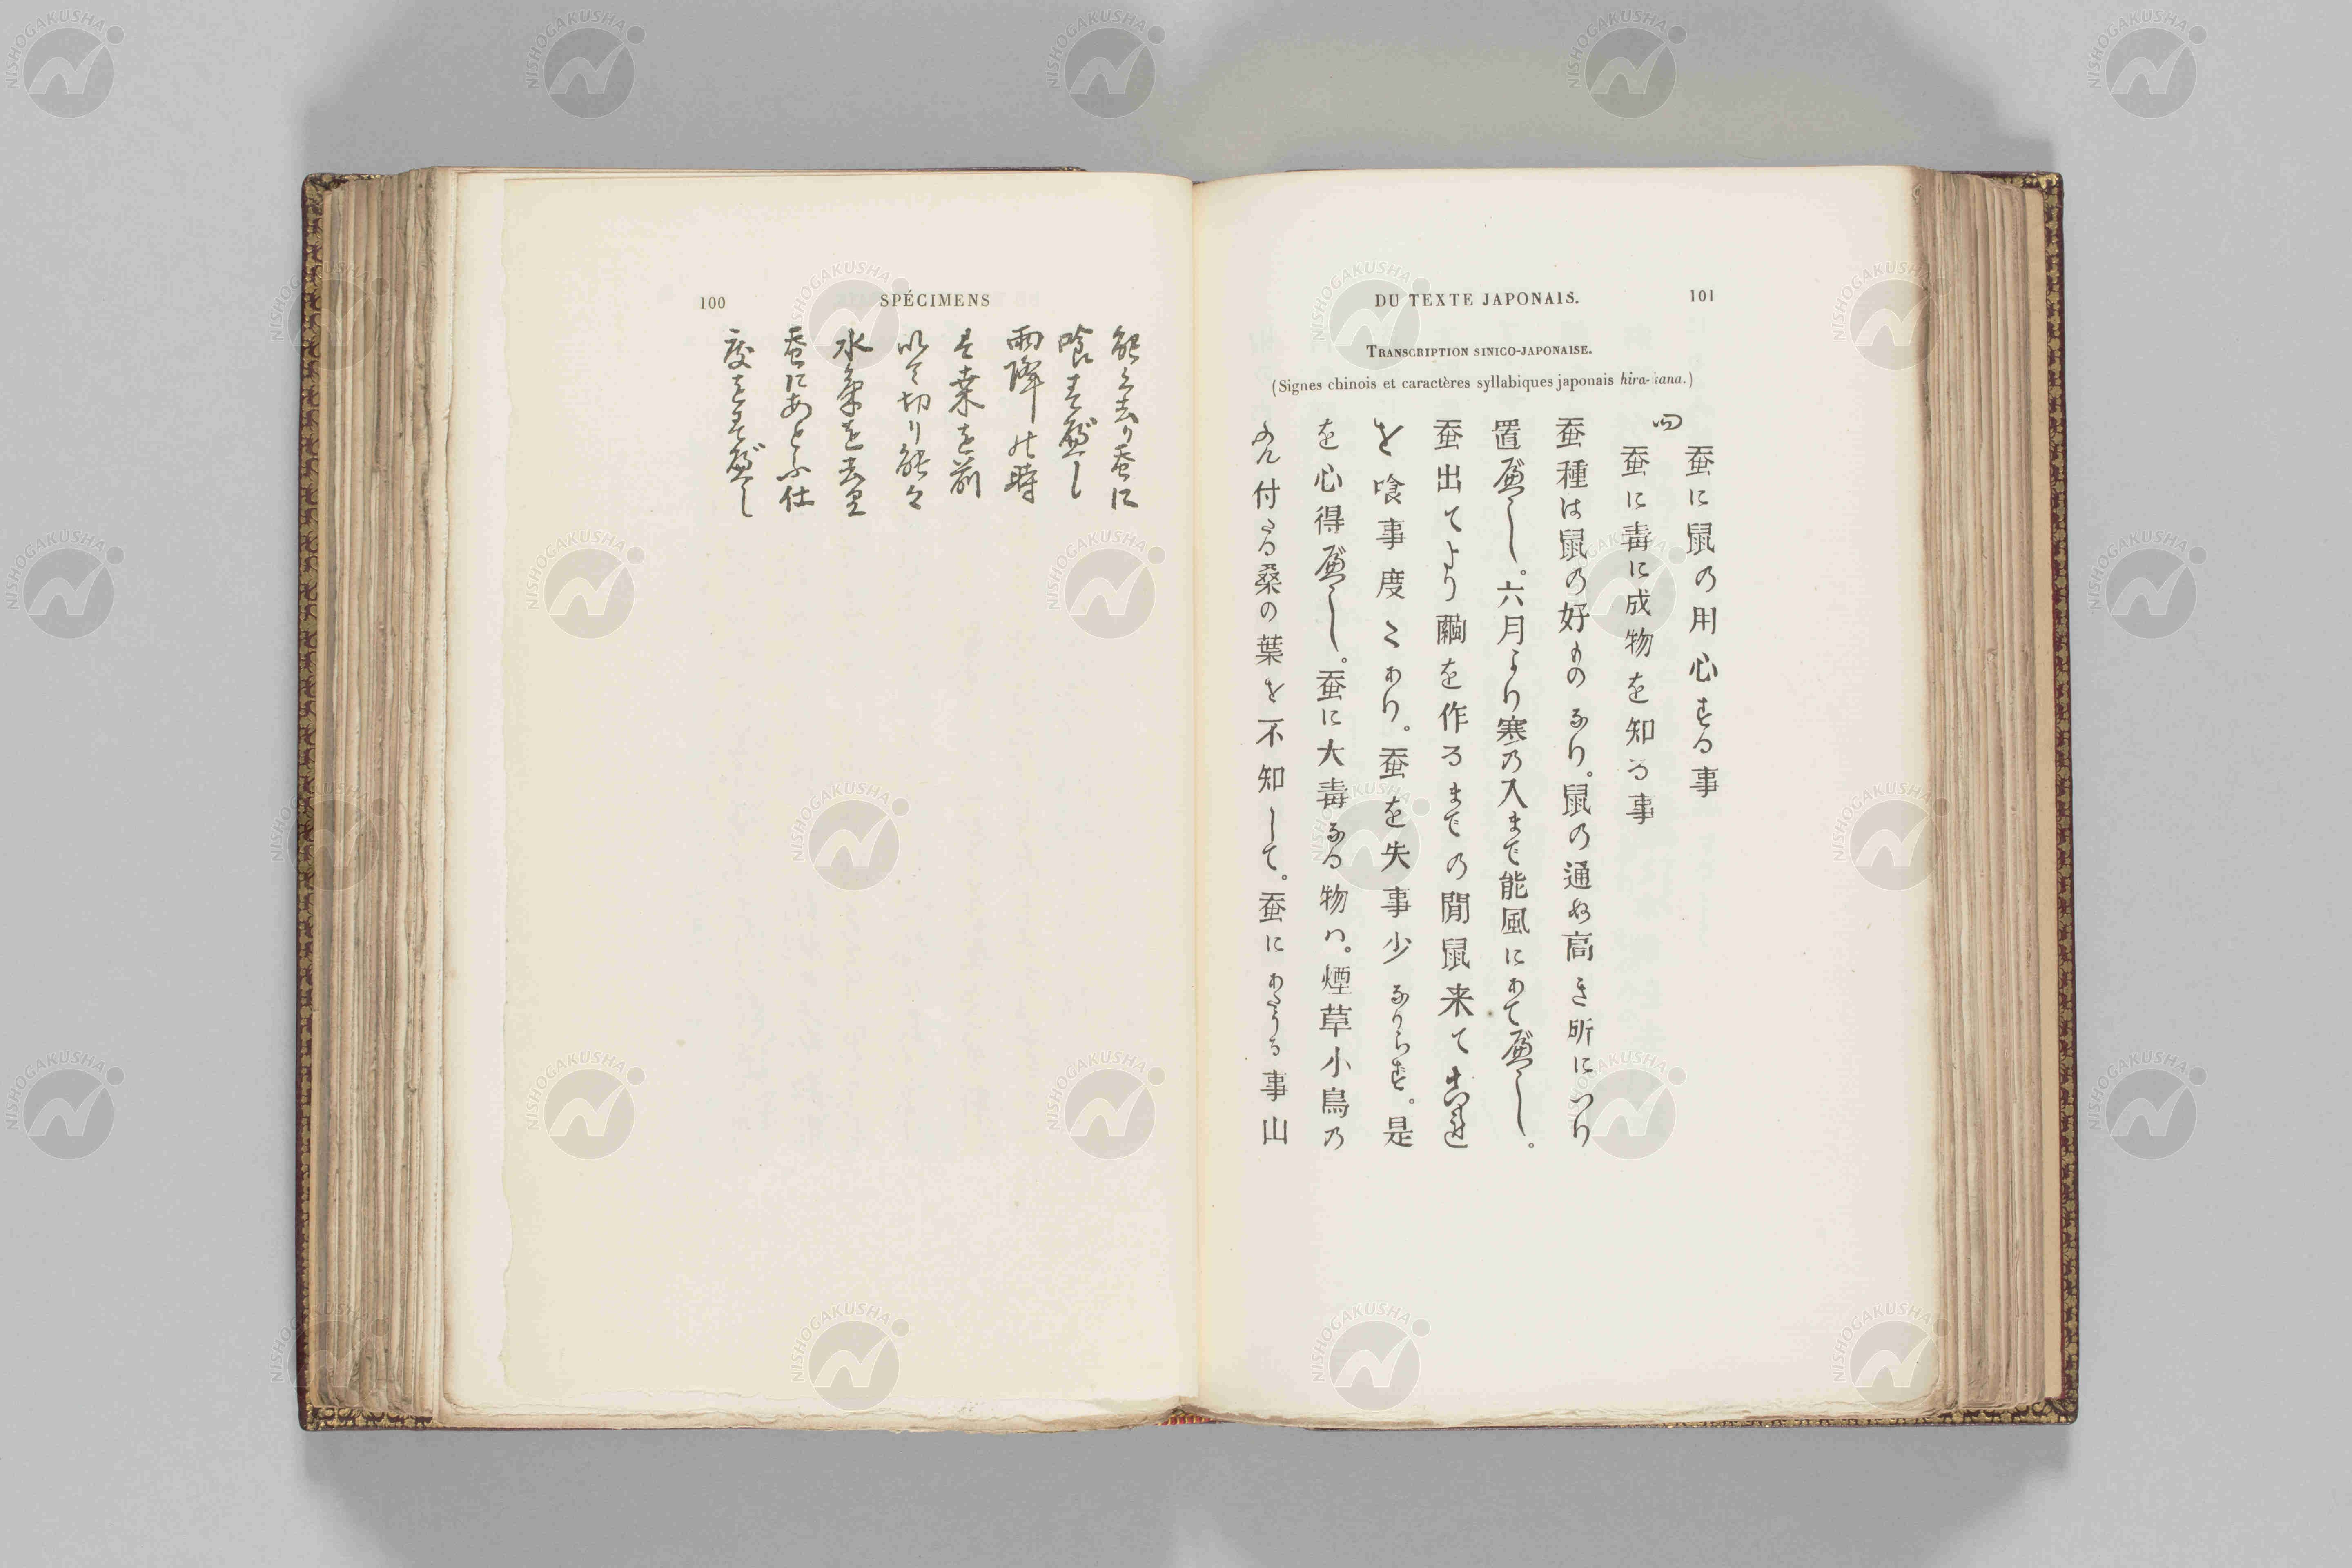 100
SPÉCIMENS
能々去り蚕に
喰すべし
雨降の時
は桒を前
以て切り能々
水気を去里
蚕にあとふ仕
度をすべし
DU TEXTE JAPONAIS.
101
TRANSCRIPTION SINICO-JAPONAISE.
(Signes chinois et caractères syllabiques japonais hira-kana.)
四
蚕に鼠の用心する事
蚕に毒に成物を知る事
蚕種は鼠の好ものなり。鼠の通ぬ高き所につり
置べし。六月より寒乃入まで能風にあて べし。
蚕出てより繭を作るまでの間鼠来て
を喰事度〻あり。蚕を失事少なからず。是
を心得べし。蚕に大毒なる物ハ。煙草小鳥乃
ふん付たる桑の葉を不知して。蚕にあたうる事山
NISHOGAKUSHA